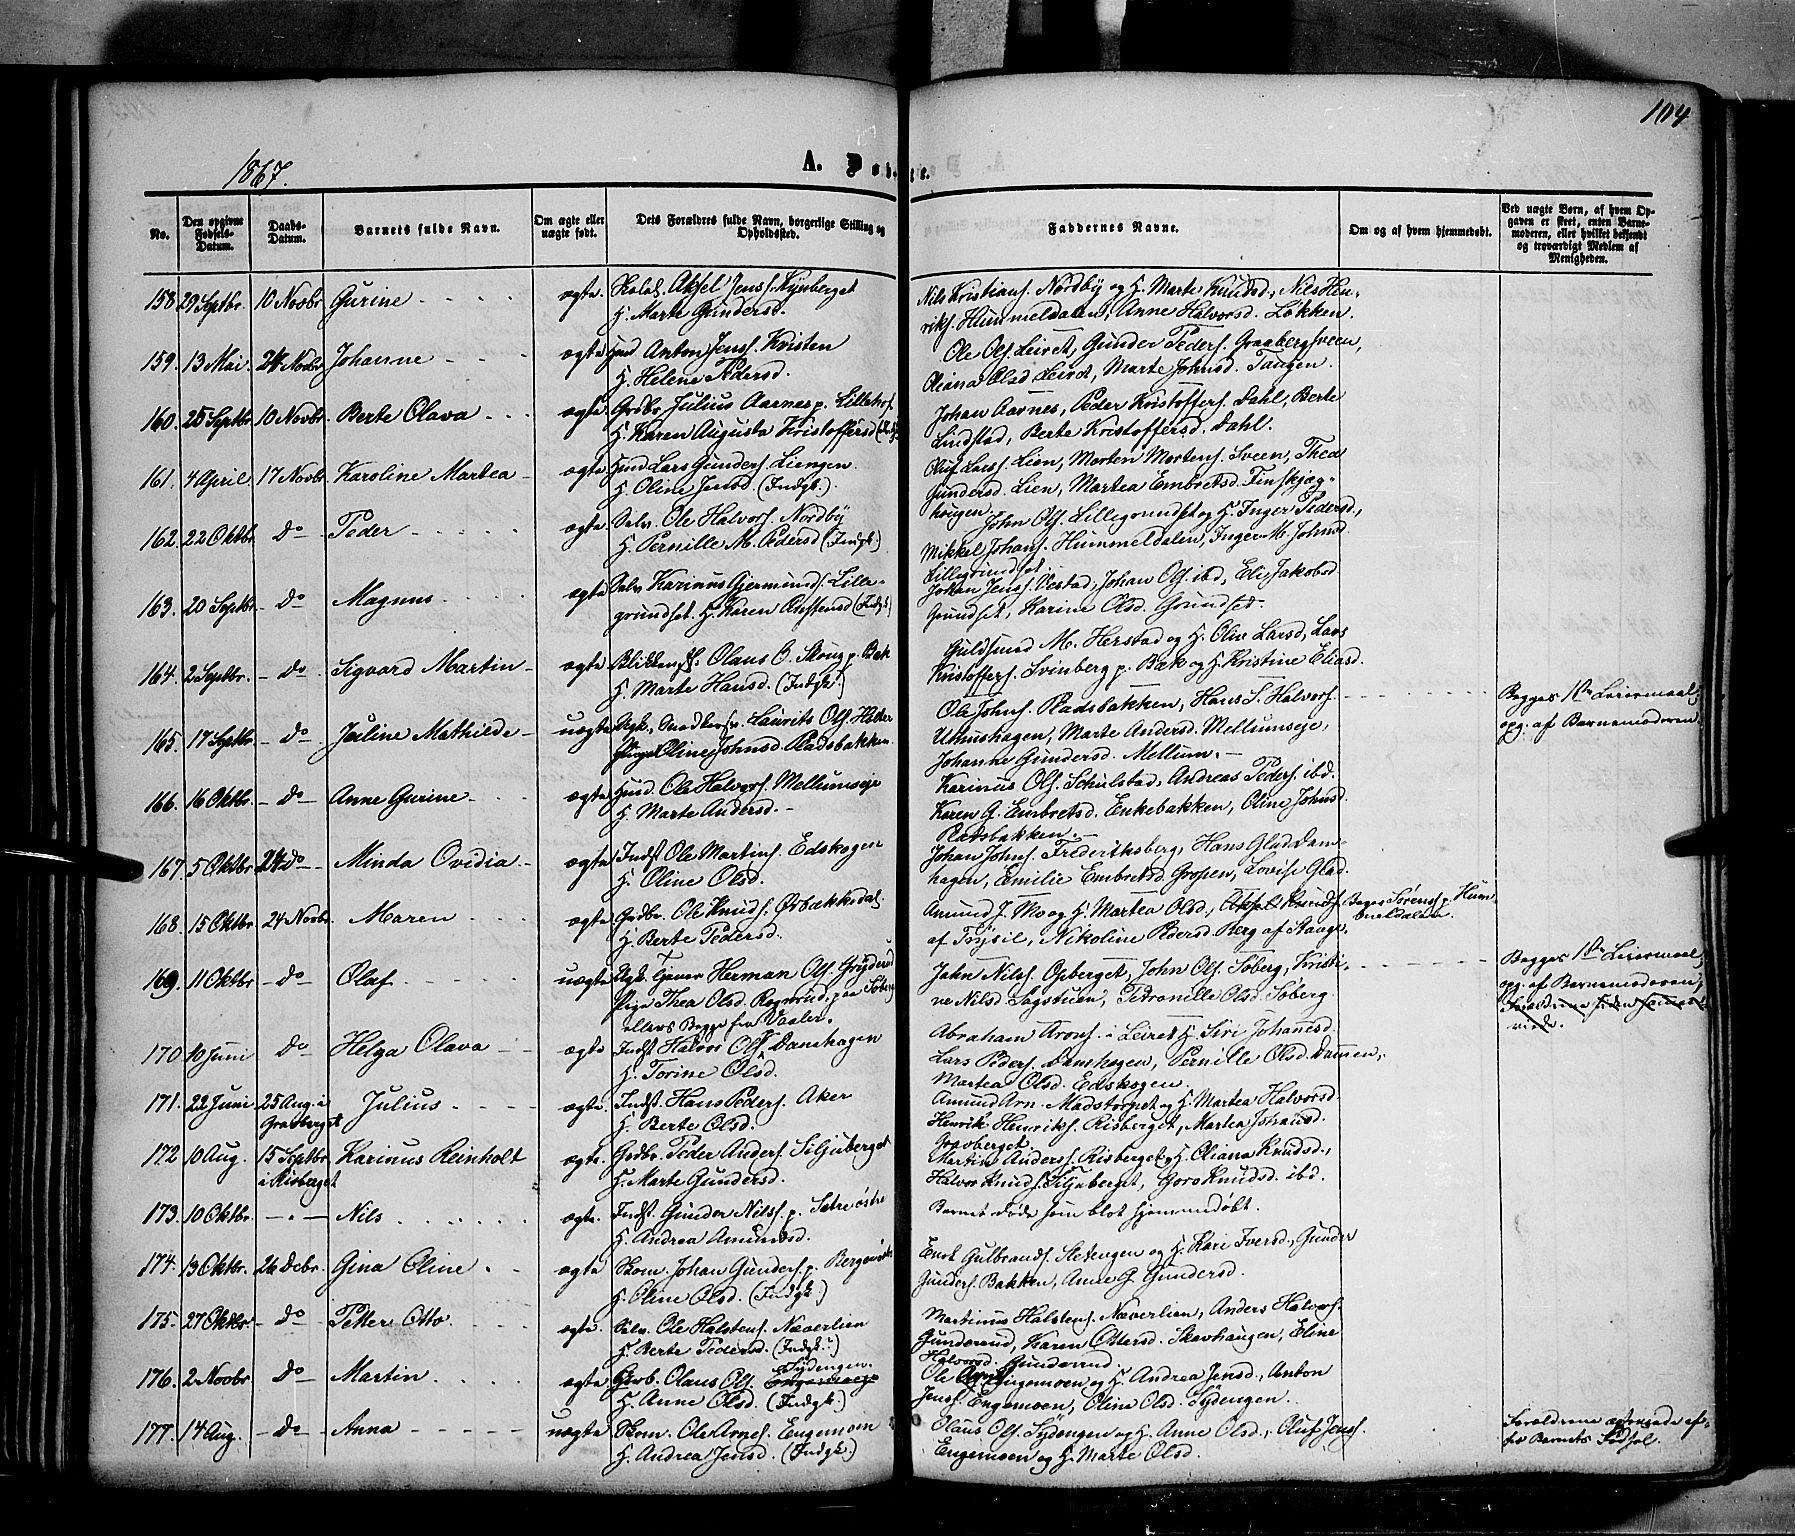 104
1867.
A. Døbte.
No.
Den opgivne Fødsels-Datum.
Daabs-Datum.
Barnets fulde Navn.
Om ægte eller uægte født.
Dets Forældres fulde Navn, borgerlige Stilling og Opholdssted.
Faddernes Navne.
Om og af hvem hjemmedøbt.
Ved uægte Børn, af hvem Opgaven er skeet, enten Barnemoderen, eller hvilket bekjendt og troværdigt Medlem af Menigheden.
158 29 Septbr. 10 Novbr. Gurine ægte. Aksel Jens. Kynberget
H. Marte Gundersd.
Nils Kristians. Nordby og H. Marte Knudsd., Nils Hen-
riks. Hummeldalen, Anne Halvorsd. Løkken.
159. 13 Mai. 24 Novbr. Johanne ægte Hmd Anton Jens. Kristen
H. Helene Pedersd.
Ole Ols. Leiret, Gunder Peders. Graabergsveen,
Oliana Olsd Leiret, Marte Johnsd. Tangen.
160. 25 Septbr. 10 Novbr. Berte Olava ægte Grdbr. Julius Aarnes p. Lillehof
H. Karen Augusta Kristoffersd
Johan Aarnes, Peder Kristoffers. Dahl, Berte
Lindstad, Berte Kristoffersd. Dahl.
161. 4 April 17 Novbr. Karoline Martea ægte Hmd Lars Gunders. Liengen.
H. Oline Jensd. (Indgk.)
Oluf Lars. Lien, Morten Mortens. Sveen, Thea
Gundersd. Lien, Martea Embretsd. Finskjæg-
haugen.
162. 22 Oktbr. Do Peder ægte. Selv. Ole Halvors. Nordby
H. Pernille M. Pedersd (Indgk.)
John Ols. Lillegrundset og H. Inger Pedersd.,
Mikkel Johans. Hummeldalen, Inger M. Johnsd.
Lillegrundset.
163. 20 Septbr. Do Magnus ægte Selv Karinus Gjermunds. Lille-
grundset. H. Karen (Indgk.)
Johan Jens. Vestad, Johan Ols. ibd, Eli Jakobsd
Grundset, Karine Olsd. Grundset.
164. 2 Septbr. Do Sigvard Martin ægte Blikkensl. Olaus O. Skoug p. Bæk
H. Marte Hansd. (Indgk.)
Guldsmed M. Herstad og H. Olive Larsd., Lars
Kristoffers. Svinberg p. Bæk og H. Kristine Eliasd.
165. 17 Septbr. Do Juline Mathilde uægte Ungk. Snedkersv. Laurits Ols. Hitter
Pige Oline Johnsd. Pladsbakken
Ole Johns. Pladsbakken, Hans S. Halvors.
Utnushagen, Marte Andersd. Mellumseje,
Johanne Gundersd. Mellum.
Begges 1ste Leiermaal,
opg. af Barnemoderen.
166. 16 Oktbr. Do Anne Gurine ægte Hmd. Ole Halvors. Mellumseje
H. Marte Andersd.
Karinus Ols. Schulstad, Andreas Peders. ibd.
Karen G. Embretsd. Enkebakken, Oline Johnsd.
Pladsbakken.
167. 5 Oktbr 24 Do Minda Ovidia ægte Indst. Ole Martins. Edskogen
H. Oline Olsd.
Johan Johns. Frederiksberg, Hans Glad Dam-
hagen, Emilie Embretsd. Gropen, Lovise Glad.
168. 15 Oktbr. 24 Novbr. Maren ægte Grdbr. Ole Knuds. Ørbækkedal.
H. Berte Pedersd.
Amund J. Mo og H. Martea Olsd., Aksel Knuds.
af Trysil, Nikoline Pedersd. Berg af Stange.
Boger Sørens. p. Hum-
meldalen.
169. 11 Oktbr. Do Olaf uægte Ungk. Garver Herman Ols. Gryderud
Pige Thea Olsd. Rognrud paa Søberg
ellers Begge fra Vaaler.
Jahn Nils. Opberget, John Ols. Søberg, Kristi-
ne Nilsd. Sagstuen, Petronille Olsd. Søberg
Begges 1ste Leiermaal,
opg. af Barnemoderen,
170 10 Juni Do Helga Olava ægte Indst. Halvor Ols. Damhagen
H. Torine Olsd.
Abrahan Arons. i Leiret H. Siri Johanesd.
Lars Peders. Damhagen, Pernille Olsd. Dammen,
Martea Olsd. Edskogen.
171. 22 Juni 25 Aug. i
Gravberget Julius ægte. Indst. Hans Peders. Aker
H. Berte Olsd.
Amund Arn. Madstorpet og H. Martea Halvorsd.
Henrik Henriks. Risberget, Martea Johansd.
Gravberget.
172 10 Aug. 15 Septbr.
i Risberget Karinus Reinholt ægte. Grdbr. Peder Anders. Siljuberget
H. Marte Gundersd.
Martin Anders. Risberget og H. Oliana Knudsd.,
Halvor Knuds. Siljuberget, Goro Knudsd. ibd.
173. 10 Oktbr. Nils ægte. Indst. Gunder Nils. p. Sætre østre
H. Andrea Amundsd.
Barnet døde som blot hjemmedøbt.
174. 13 Oktbr. 26 Decbr. Gina Oline ægte Skom. Johan Gunders. p.
H. Oline Olsd. (Indgk.)
Enst Gulbrands. Sletengen og H. Kari Iversd., Gunder
Gunders. Bakken, Anne G. Gundersd.
175. 27 Oktbr. Do Petter Otto ægte. Selv. Ole Halstens. Næverlien
H. Berte Pedersd. (Indgk.)
Martinus Halstens. Næverlien, Anders Halvors.
Gunderud, Karen Ottersd. Skavhaugen, Eline
Halvorsd. Gunderud.
176. 2 Novbr. Do Martin ægte Garb. Olaus Ols. Sydengen.
H. Anne Olsd. (Indgk.)
Ole Arnes. Engemoen og H. Andrea Jensd., Anton
Jens. Engemoen, Oline Olsd. Sydengen.
177. 14 Aug. Do Anna uægte Skom. Ole Arnes. Engemoen
H. Andrea Jensd. (Indgk.)
Olaus Ols. Sydengen og H. Anne Olsd., Oluf Jens.
Engemoen og H. Marte Olsd.
Forældrene ægteviede ef-
ter Barnets Fødsel.